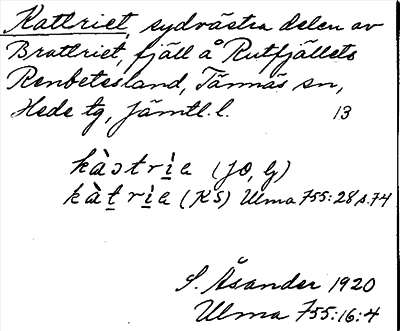 Kattriet, sydvästra delen av
Brattriet, fjäll å Rutfjällets
Renbetesland, Tännäs sn,
Hede tg, Jämtl. l. 13
kàstrìa (JO, G)
kàt̲rìa (KS) Ulma 755:28 s. 74
S. Åsander 1920
Ulma 755:16:4